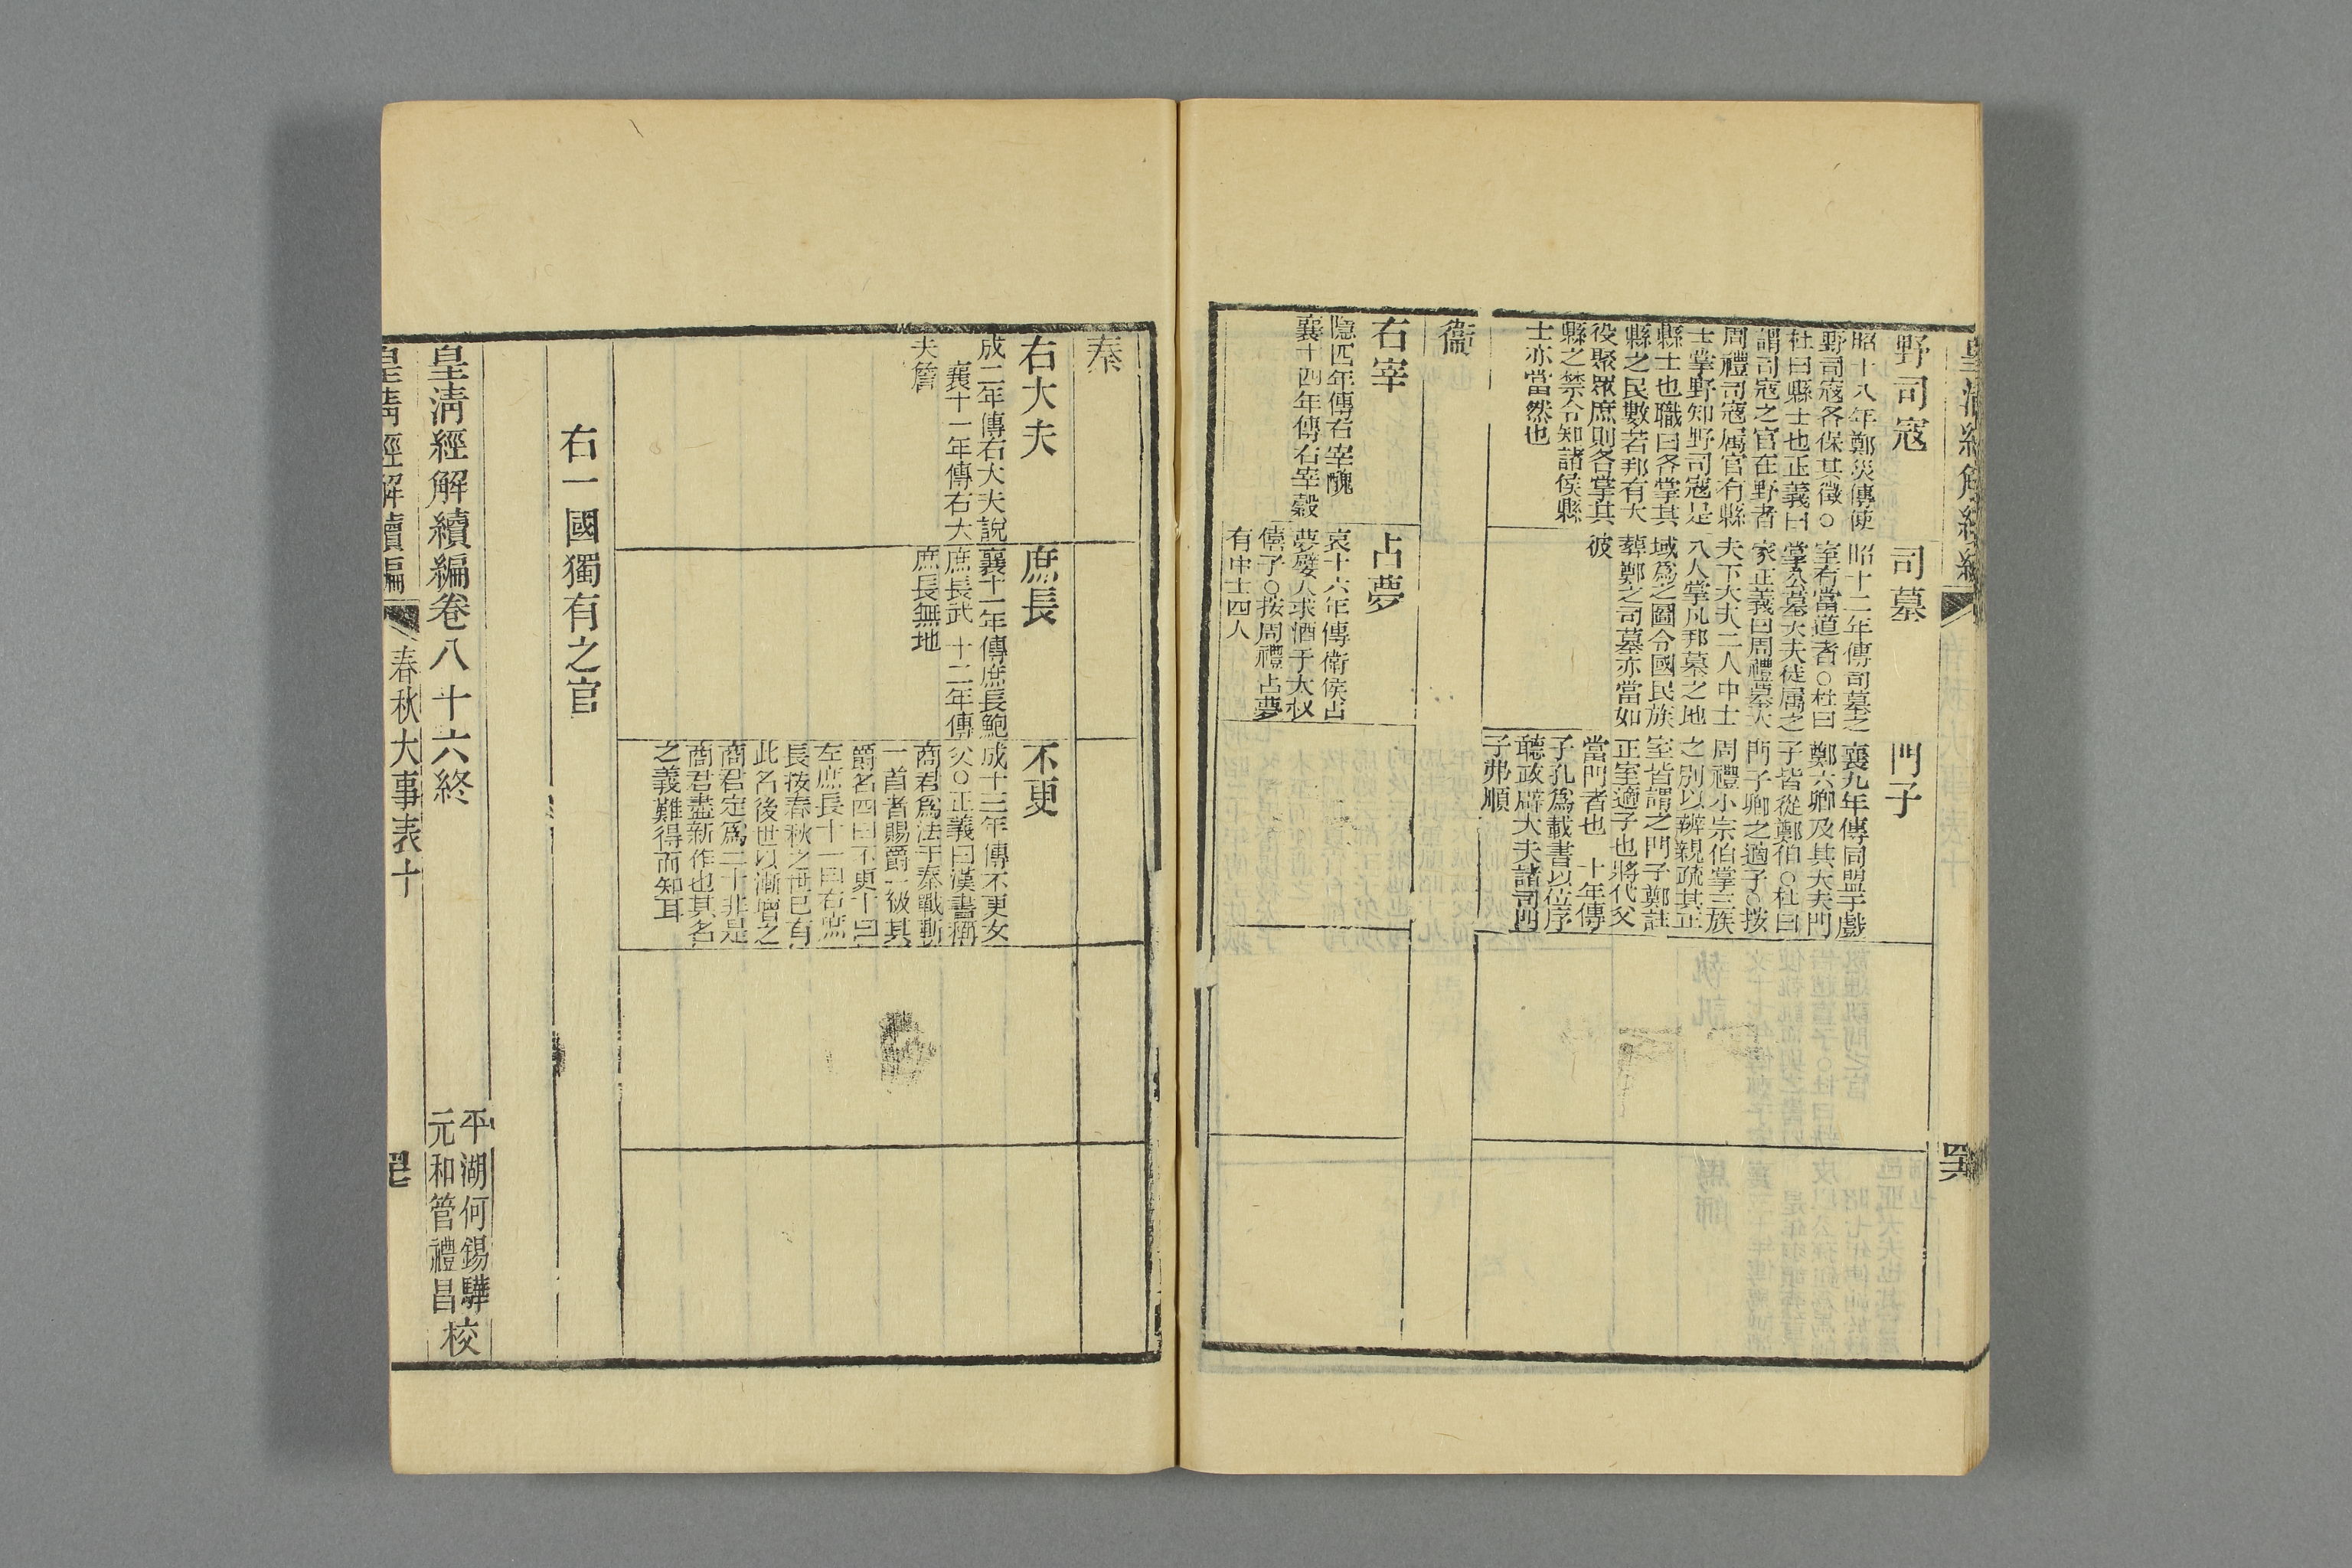 皇清經解續編
野司寇
昭十八年鄭災傳使
野司寇各保其徵○
杜曰縣士也正義曰
謂司寇之官在野者
周禮司寇屬官有縣
士掌野知野司寇是
縣士也職曰各掌其
縣之民數若邦有大
役聚眾庶則各掌其
縣之禁令知諸侯縣
士亦當然也
司墓
昭十二年傳司墓之
室有當道者○杜曰
掌公墓大夫徒屬之
家正義曰周禮墓大
夫下大夫二人中士
八人掌凡邦墓之地
域為之圖令國民族
葬鄭之司墓亦當如
彼
門子
襄九年傳同盟于戲
鄭六卿及其大夫門
子皆從鄭伯○杜曰
門子卿之適子○按
周禮小宗伯掌三族
之別以辨親疏其正
室皆謂之門子鄭註
正室適子也將代父
當門者也 十年傳
子孔為載書以位序
聽政辟大夫諸司門
子弗順
衞
右宰
隱四年傳右宰醜
襄十四年傳右宰穀
占夢
哀十六年傳衛侯占
夢嬖人求酒于大叔
僖子○按周禮占夢
有中士四人
秦
右大夫
成二年傳右大夫說
襄十一年傳右大
夫詹
庶長
襄十一年傳庶長鮑
庶長武 十二年傳
庶長無地
不更
成十三年傳不更女
父○正義曰漢書稱
商君為法于秦戰斬
一首者賜爵一級其
爵名四曰不更十曰
左庶長十一曰右庶
長按春秋之世已有
此名後世以漸增之
商君定為二十非是
商君盡新作也其名
之義難得而知耳
右一國獨有之官
皇清經解續編卷八十六終
平湖何錫驊
元和管禮昌
校
皇清經解續編
春秋大事表十